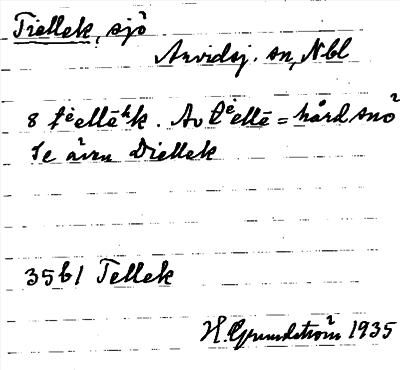 Tiellek, sjö
Arvidsj. sn, Nbl
8 tiellēhk. Av tiellē = hård snö
Se även Diellek
35b1 Tellek
H. Grundström 1935